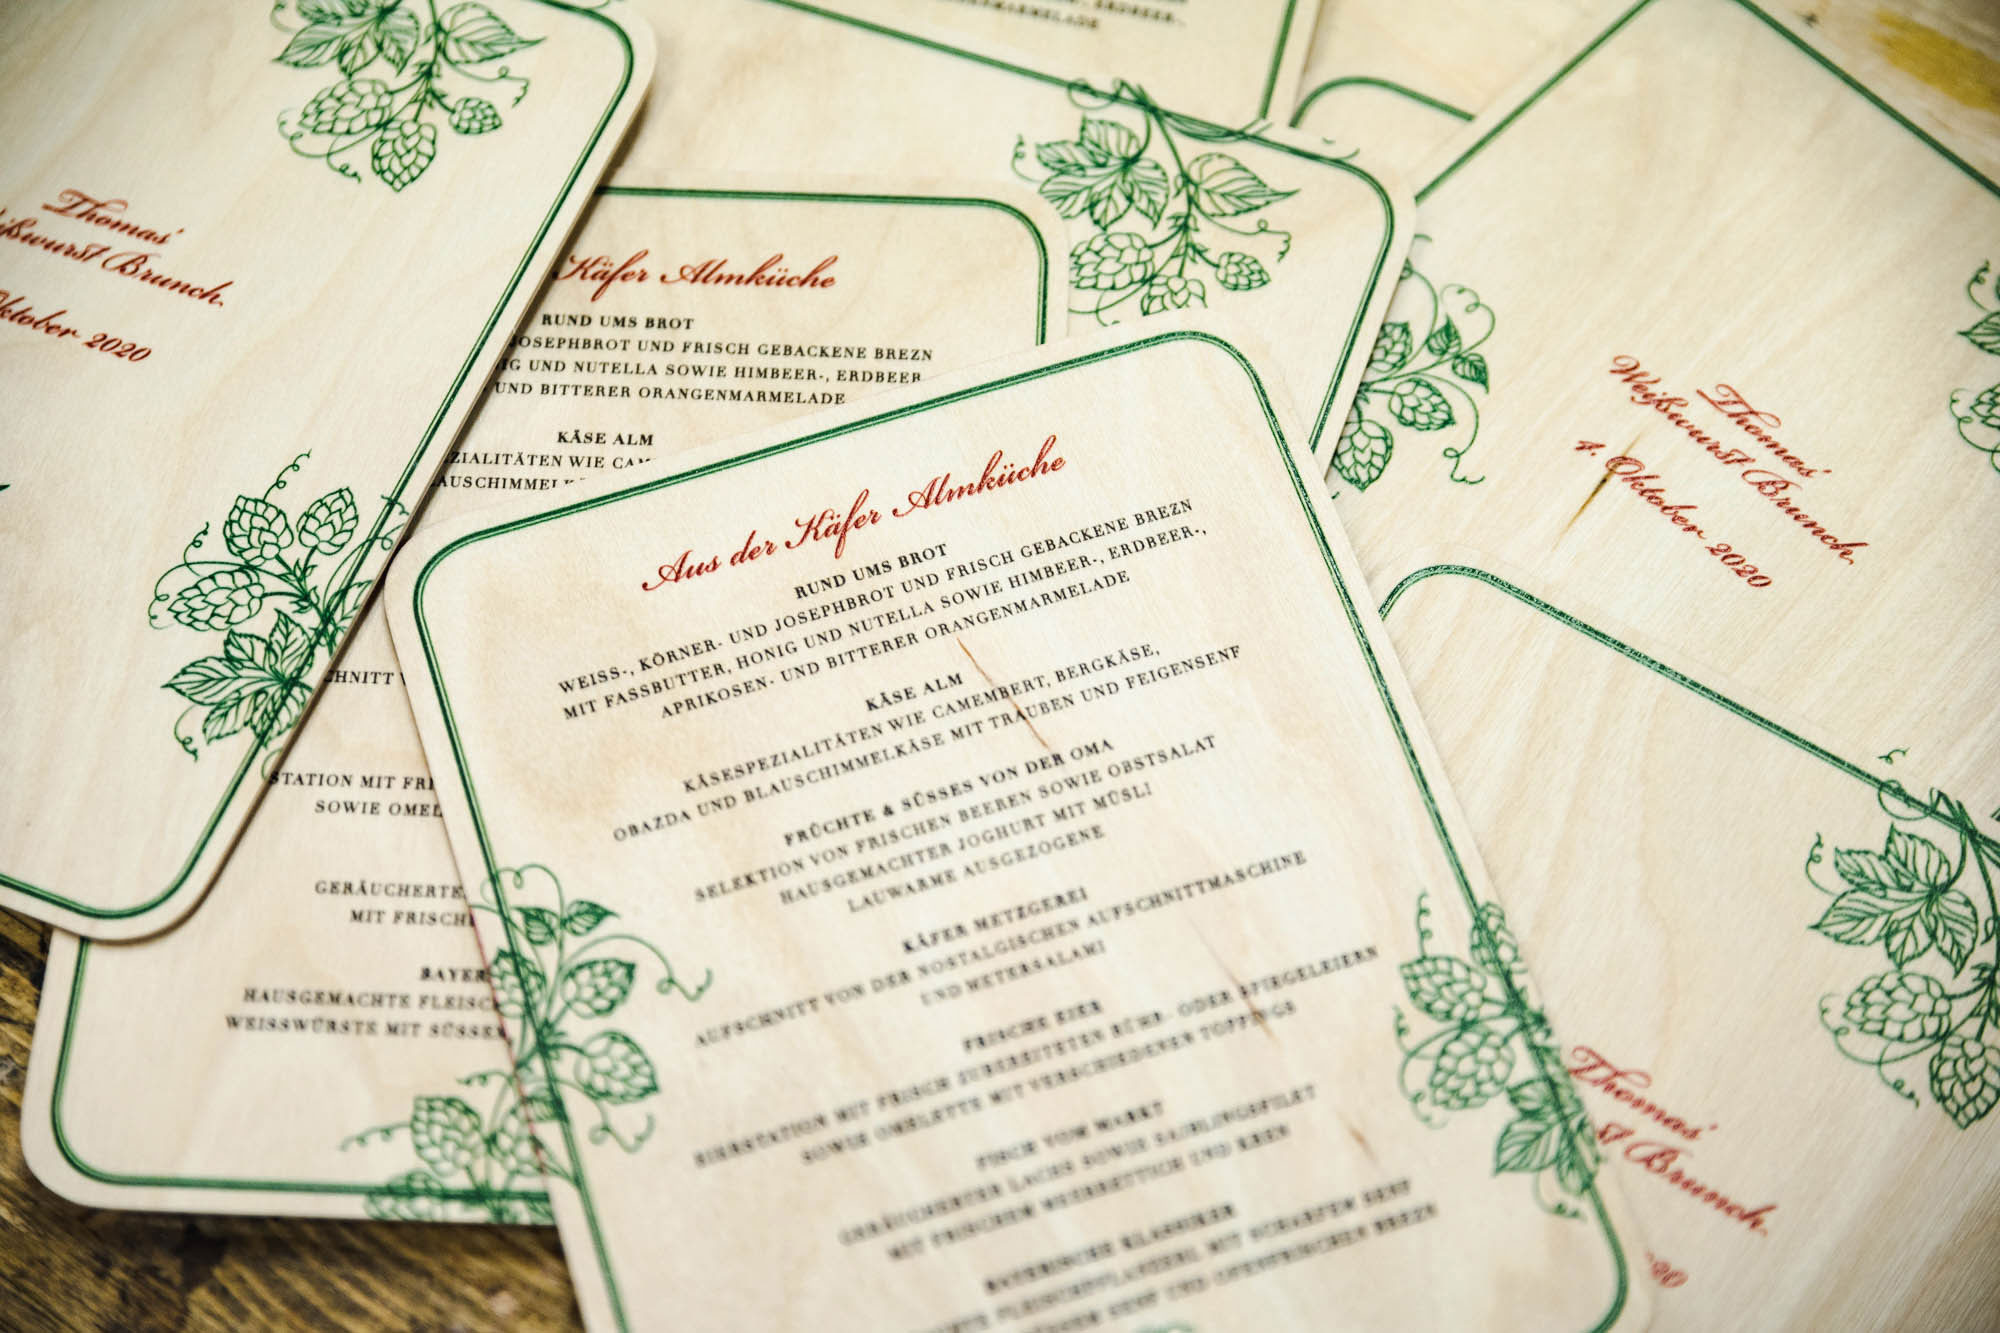 Thomas'
Brunch.
Oktober 2020
Käfer Almküche
RUND UMS BROT
JOSEPHBROT UND FRISCH GEBACKENE BREZN
UND NUTELLA SOWIE HIMBEER-, ERDBEER
UND BITTERER ORANGENMARMELADE
KÄSE ALM
WIE
STATION MIT
SOWIE
MIT
HAUSGEMACHTE
WEISSWÜRSTE MIT
Aus der Käfer Almküche
RUND UMS BROT
WEISS-, KÖRNER- UND JOSEPHBROT UND FRISCH GEBACKENE BREZN
MIT FASSBUTTER, HONIG UND NUTELLA SOWIE HIMBEER-, ERDBEER-,
APRIKOSEN- UND BITTERER ORANGENMARMELADE
KÄSE ALM
KÄSESPEZIALITÄTEN WIE CAMEMBERT, BERGKÄSE,
OBAZDA UND BLAUSCHIMMELKÄSE MIT TRAUBEN UND FEIGENSENF
FRÜCHTE & SÜSSES VON DER OMA
SELEKTION VON FRISCHEN BEEREN SOWIE OBSTSALAT
HAUSGEMACHTER JOGHURT MIT MÜSLI
LAUWARME AUSGEZOGENE
KÄFER METZGEREI
AUFSCHNITT VON DER NOSTALGISCHEN AUFSCHNITTMASCHINE
UND METERSALAMI
FRISCHE EIER
EIERSTATION MIT FRISCH ZUBEREITETEN RÜHR- ODER SPIEGELEIERN
SOWIE OMELETTE MIT VERSCHIEDENEN TOPPINGS
FISCH VOM MARKT
GERÄUCHERTER LACHS SOWIE SAIBLINGSFILET
MIT FRISCHEM MEERRETTICH UND KREN
BAYERISCHE KLASSIKER
FLEISCHPFLANZERL MIT SCHARFEN SENF
SENF UND OFENFRISCHEN BREZN
Thomas'
Weißwurst Brunch.
4. Oktober 2020
Thomas'
Brunch.
20